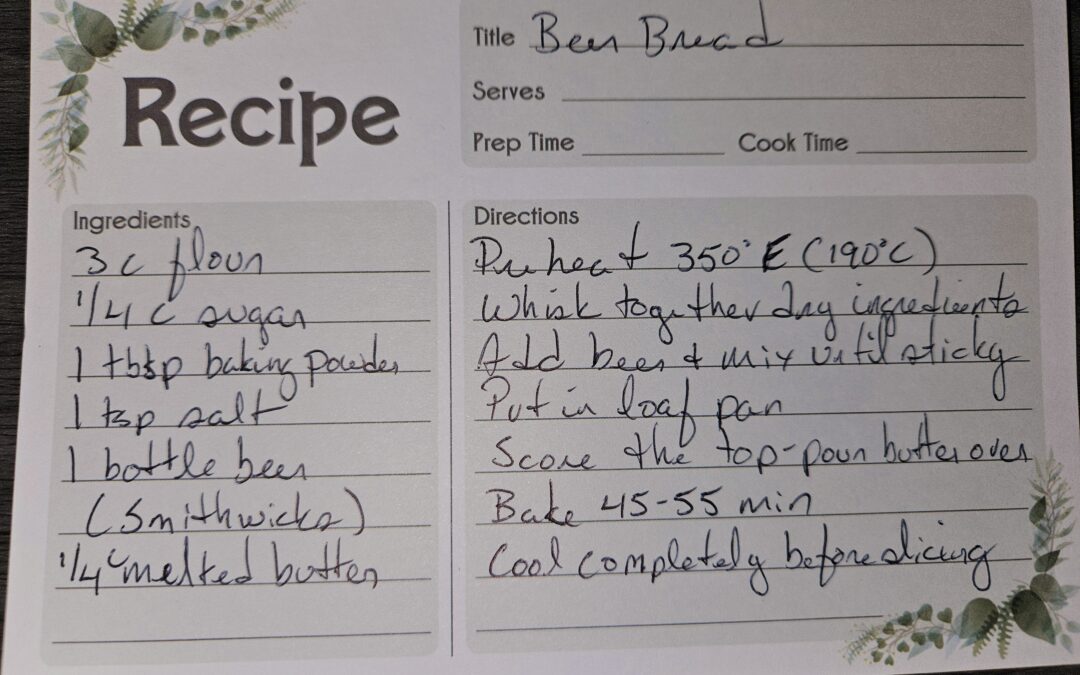 Recipe
Title Beer Bread
Serves
Prep Time Cook Time
Ingredients
3 c flour
1/4 c sugar
1 tbsp baking powder
1 tsp salt
1 bottle beer
(Smithwicks)
1/4 c melted butter
Directions
Preheat 350° F (190°C)
Whisk together dry ingredients
Add beer & mix until sticky
Put in loaf pan
Score the top-pour butter over
Bake 45-55 min
Cool completely before slicing